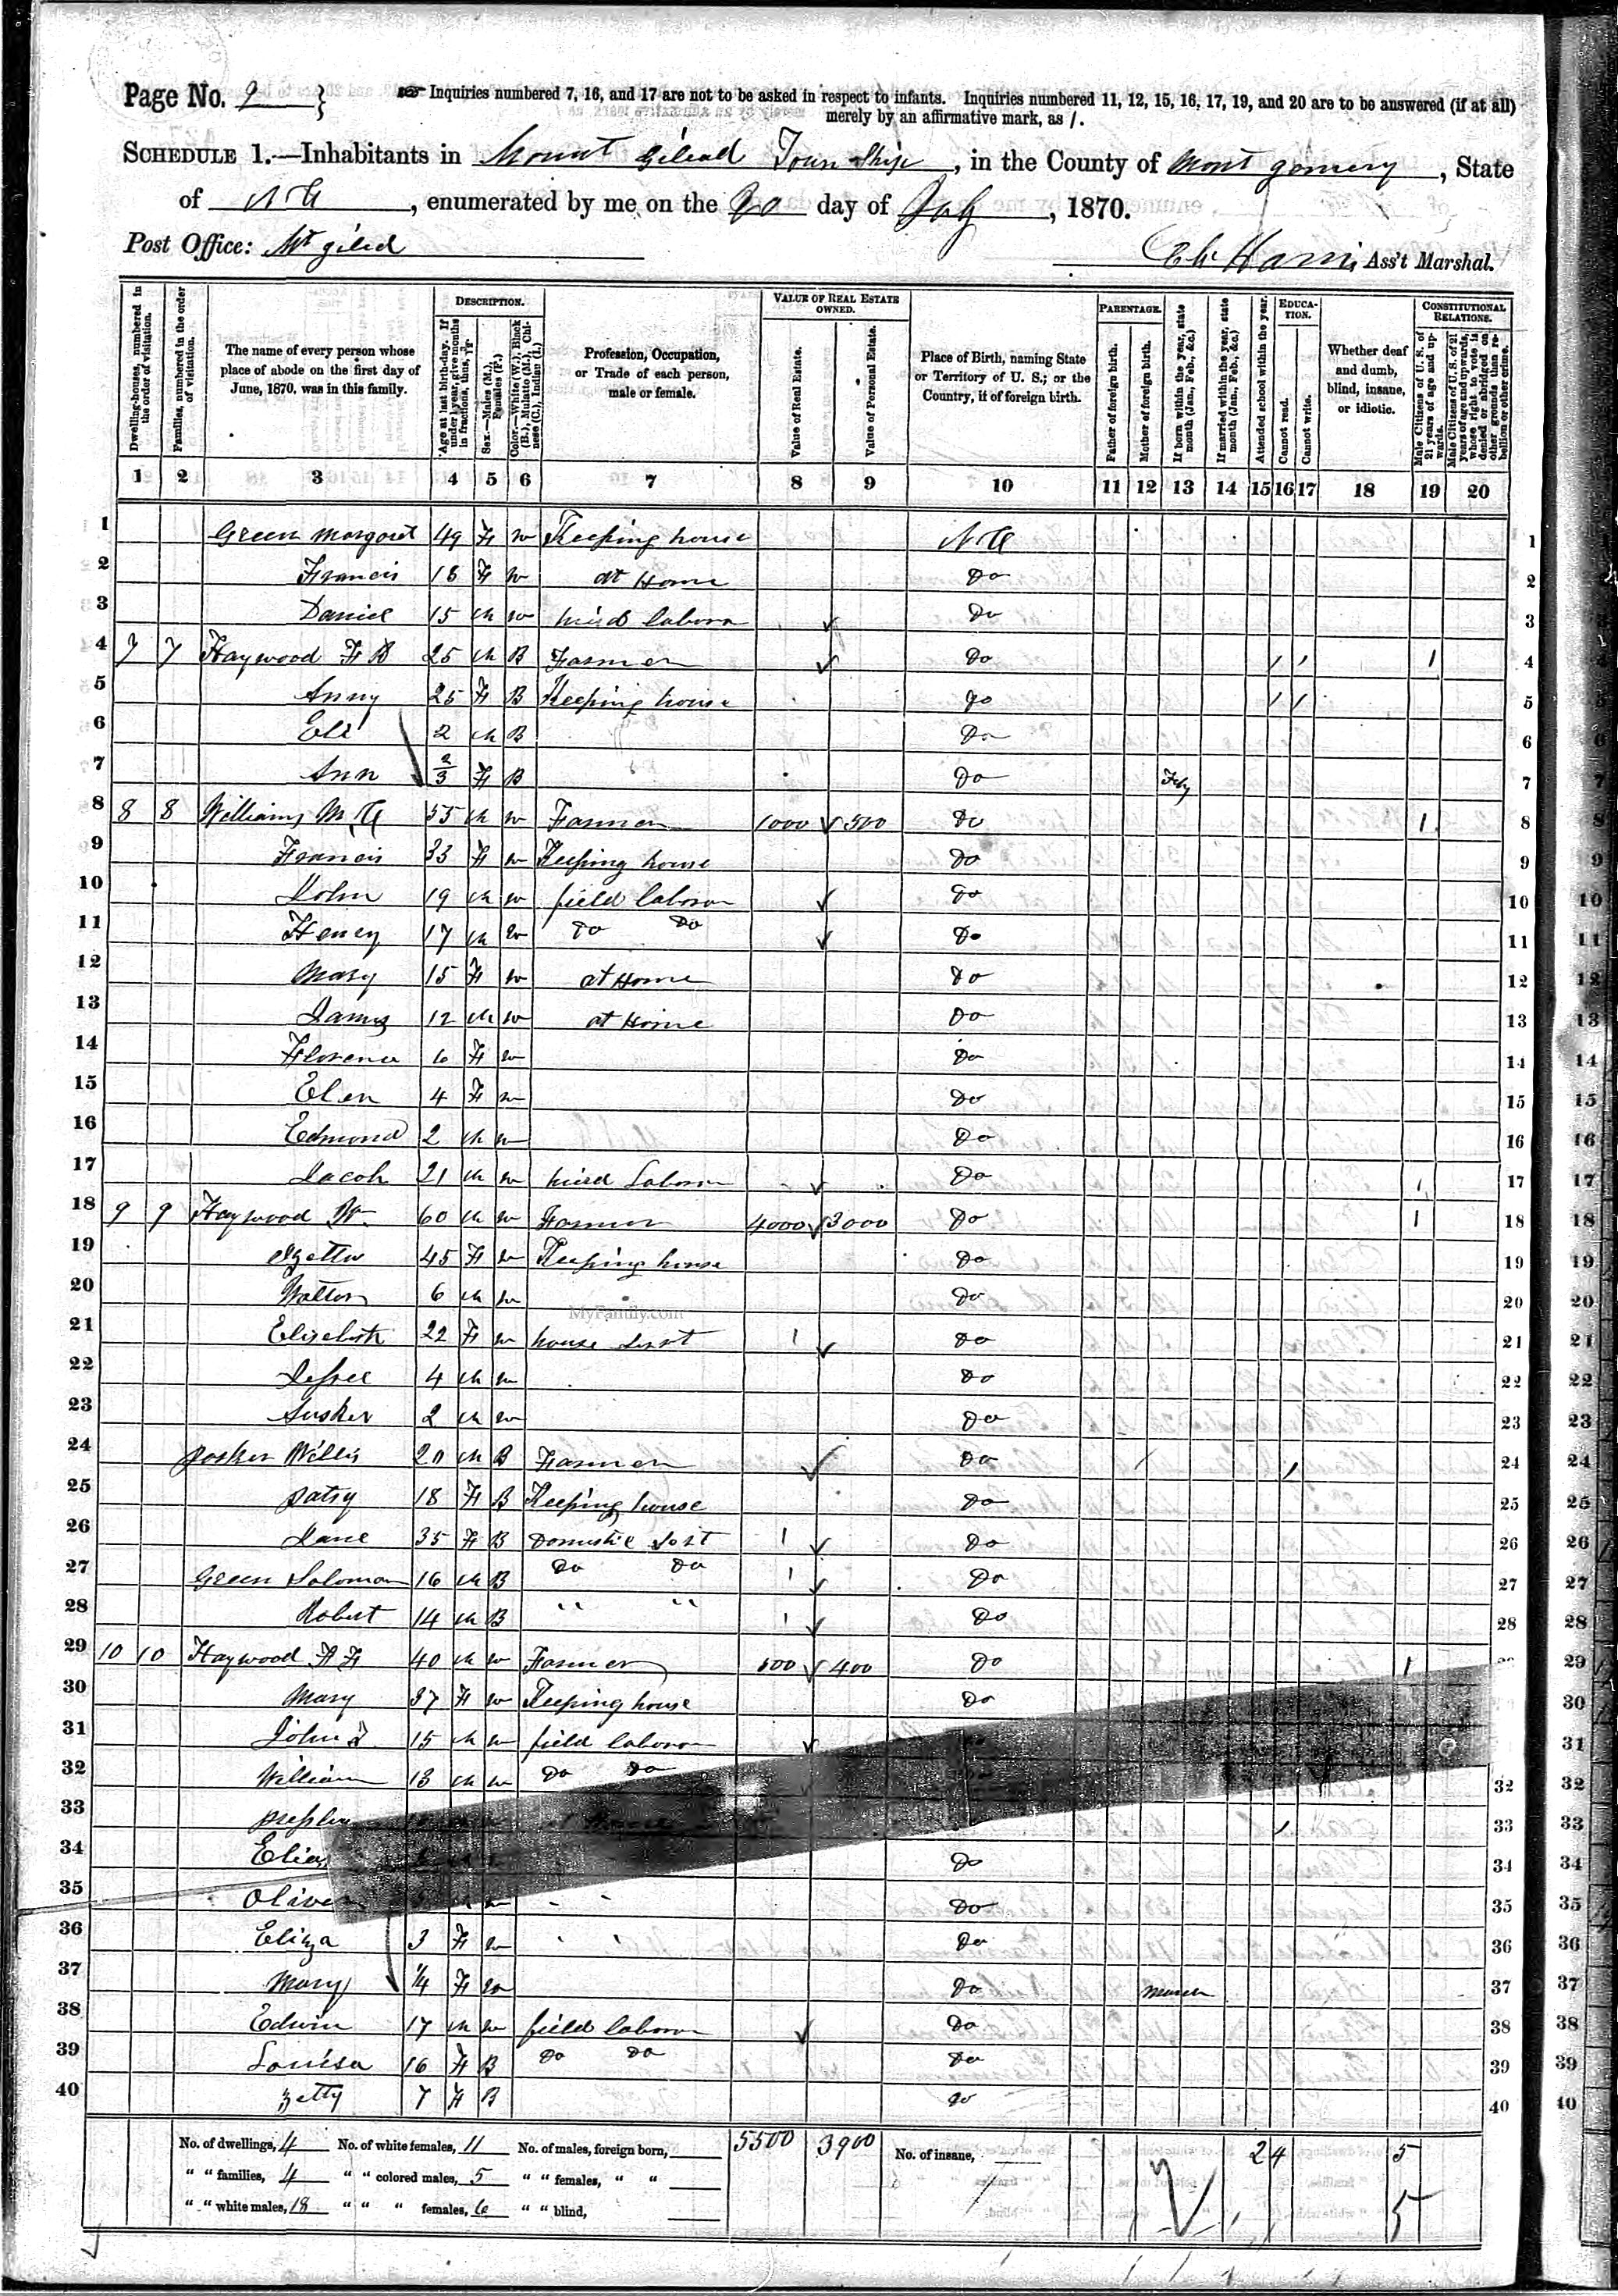 Page No. 2 } Inquiries numbered 7, 16, and 17 are not to be asked in respect to infants. Inquiries numbered 11, 12, 15, 16, 17, 19, and 20 are to be answered (if at all)
merely by an affirmative mark, as /.
SCHEDULE 1.—Inhabitants in Mount Gilead Town Ship, in the County of Mont gomery, State
of N C, enumerated by me on the 20 day of July, 1870.
Post Office: Mt giled
Harris Ass't Marshal.
Dwelling-houses, numbered in the order of visitation.
Families, numbered in the order of visitation.
The name of every person whose place of abode on the first day of June, 1870, was in this family.
DESCRIPTION.
Age at last birth-day. If under 1 year, give months in fractions, thus, 3/12.
Sex.—Males (M.), Females (F.)
Color.—White (W.), Black (B.), Mulatto (M.), Chinese (C.), Indian (I.)
Profession, Occupation, or Trade of each person, male or female.
VALUE OF REAL ESTATE OWNED.
Value of Real Estate.
Value of Personal Estate.
Place of Birth, naming State or Territory of U. S.; or the Country, if of foreign birth.
PARENTAGE.
Father of foreign birth.
Mother of foreign birth.
If born within the year, state month (Jan., Feb., &c.)
If married within the year, state month (Jan., Feb., &c.)
Attended school within the year.
EDUCATION.
Cannot read.
Cannot write.
Whether deaf and dumb, blind, insane, or idiotic.
CONSTITUTIONAL RELATIONS.
Male Citizens of U. S. of 21 years of age and upwards.
Male Citizens of U. S. of 21 years of age and upwards, whose right to vote is denied or abridged on other grounds than rebellion or other crime.
1 2 3 4 5 6 7 8 9 10 11 12 13 14 15 16 17 18 19 20
1 Green Margaret 49 F W Keeping house N C 1
2 Francis 18 F W at Home Do 2
3 Daniel 15 M W hired labora Do 3
4 7 7 Haywood F B 25 M B Farmer Do / / 1 4
5 Anny 25 F B Keeping house Do / / 5
6 Eli 2 M B Do 6
7 Ann 2/3 F B Do Feby 7
8 8 8 Williams M C 55 M W Farmer 1000 500 Do 1 8
9 Francis 33 F W Keeping house Do 9
10 John 19 M W field labora Do 10
11 Heney 17 M W Do Do Do 11
12 Mary 15 F W at Home Do 12
13 James 12 M W at Home Do 13
14 Florence 6 F W Do 14
15 Elen 4 F W Do 15
16 Edmond 2 M W Do 16
17 Jacob 21 M W hired Labora Do 1 17
18 9 9 Haywood Wm 60 M W Farmer 4000 3000 Do 1 18
19 45 F W Keeping house Do 19
20 Walter 6 M W Do 20
21 Elizebeth 22 F W house 1 Do 21
22 Jessee 4 M W Do 22
23 2 M W Do 23
24 Willis 20 M B Farmer Do / 24
25 patsy 18 F B Keeping house Do 25
26 Jane 35 F B Domestic 1 Do 26
27 Green Soloman 16 M B Do Do 1 Do 27
28 Robert 14 M B " " 1 Do 28
29 10 10 Haywood F F 40 M W Farmer 500 400 Do 1
30 Mary 37 F W Keeping house Do
31 John 15 M W field labora
32 William 13 M W Do Do 32
33 / 33
34 Do 34
35 Oliver Do 35
36 Eliza 3 F W Do 36
37 Mary 1/4 F W Do March 37
38 Edwin 17 M W field labora Do 38
39 Louisa 16 F B Do Do Do 39
40 Zetty 7 F B Do 40
No. of dwellings, 4 No. of white females, 11 No. of males, foreign born, 5500 3900 No. of insane, 2 4 5
" " families, 4 " " colored males, 5 " " females, " "
" " white males, 18 " " " females, 6 " " blind, 5
MyFamily.com